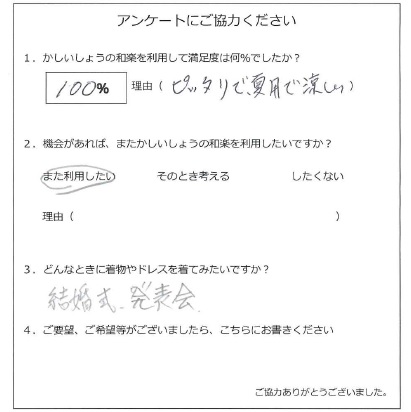 アンケートにご協力ください
1．かしいしょうの和楽を利用して満足度は何％でしたか？
100% 理由（ピッタリで夏用で涼しい）
2．機会があれば、またかしいしょうの和楽を利用したいですか？
また利用したい そのとき考える したくない
理由（ ）
3．どんなときに着物やドレスを着てみたいですか？
結婚式、発表会
4．ご要望、ご希望等がございましたら、こちらにお書きください
ご協力ありがとうございました。